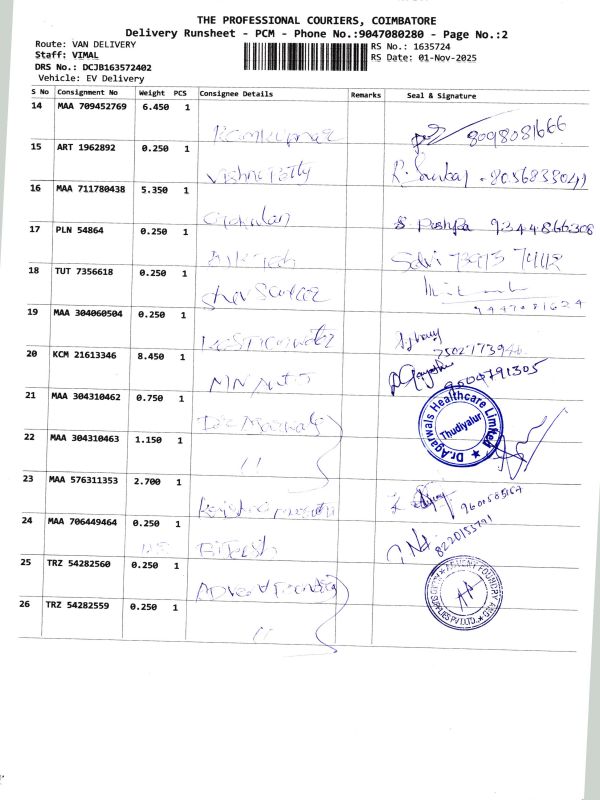 THE PROFESSIONAL COURIERS, COIMBATORE
Delivery Runsheet - PCM - Phone No.:9047080280 - Page No.:2
Route: VAN DELIVERY
RS No.: 1635724
Staff: VIMAL
RS Date: 01-Nov-2025
DRS No.: DCJB163572402
Vehicle: EV Delivery
S No Consignment No Weight PCS Consignee Details Remarks Seal & Signature
14 MAA 709452769 6.450 1
Ramkumar 8098081666
15 ART 1962892 0.250 1
R. Sankar - 8056833041
16 MAA 711780438 5.350 1
Gokulan S Pushpa 9344866308
17 PLN 54864 0.250 1
Selvi 73975 74112
18 TUT 7356618 0.250 1
Shiv Sankar
9447081624
19 MAA 304060504 0.250 1
20 KCM 21613346 8.450 1
9504791305
21 MAA 304310462 0.750 1
Dr.Agarwals Healthcare Limited
Thudiyalur
22 MAA 304310463 1.150 1
"
23 MAA 576311353 2.700 1
9600585167
24 MAA 706449464 0.250 1
8220153791
25 TRZ 54282560 0.250 1
26 TRZ 54282559 0.250 1
"